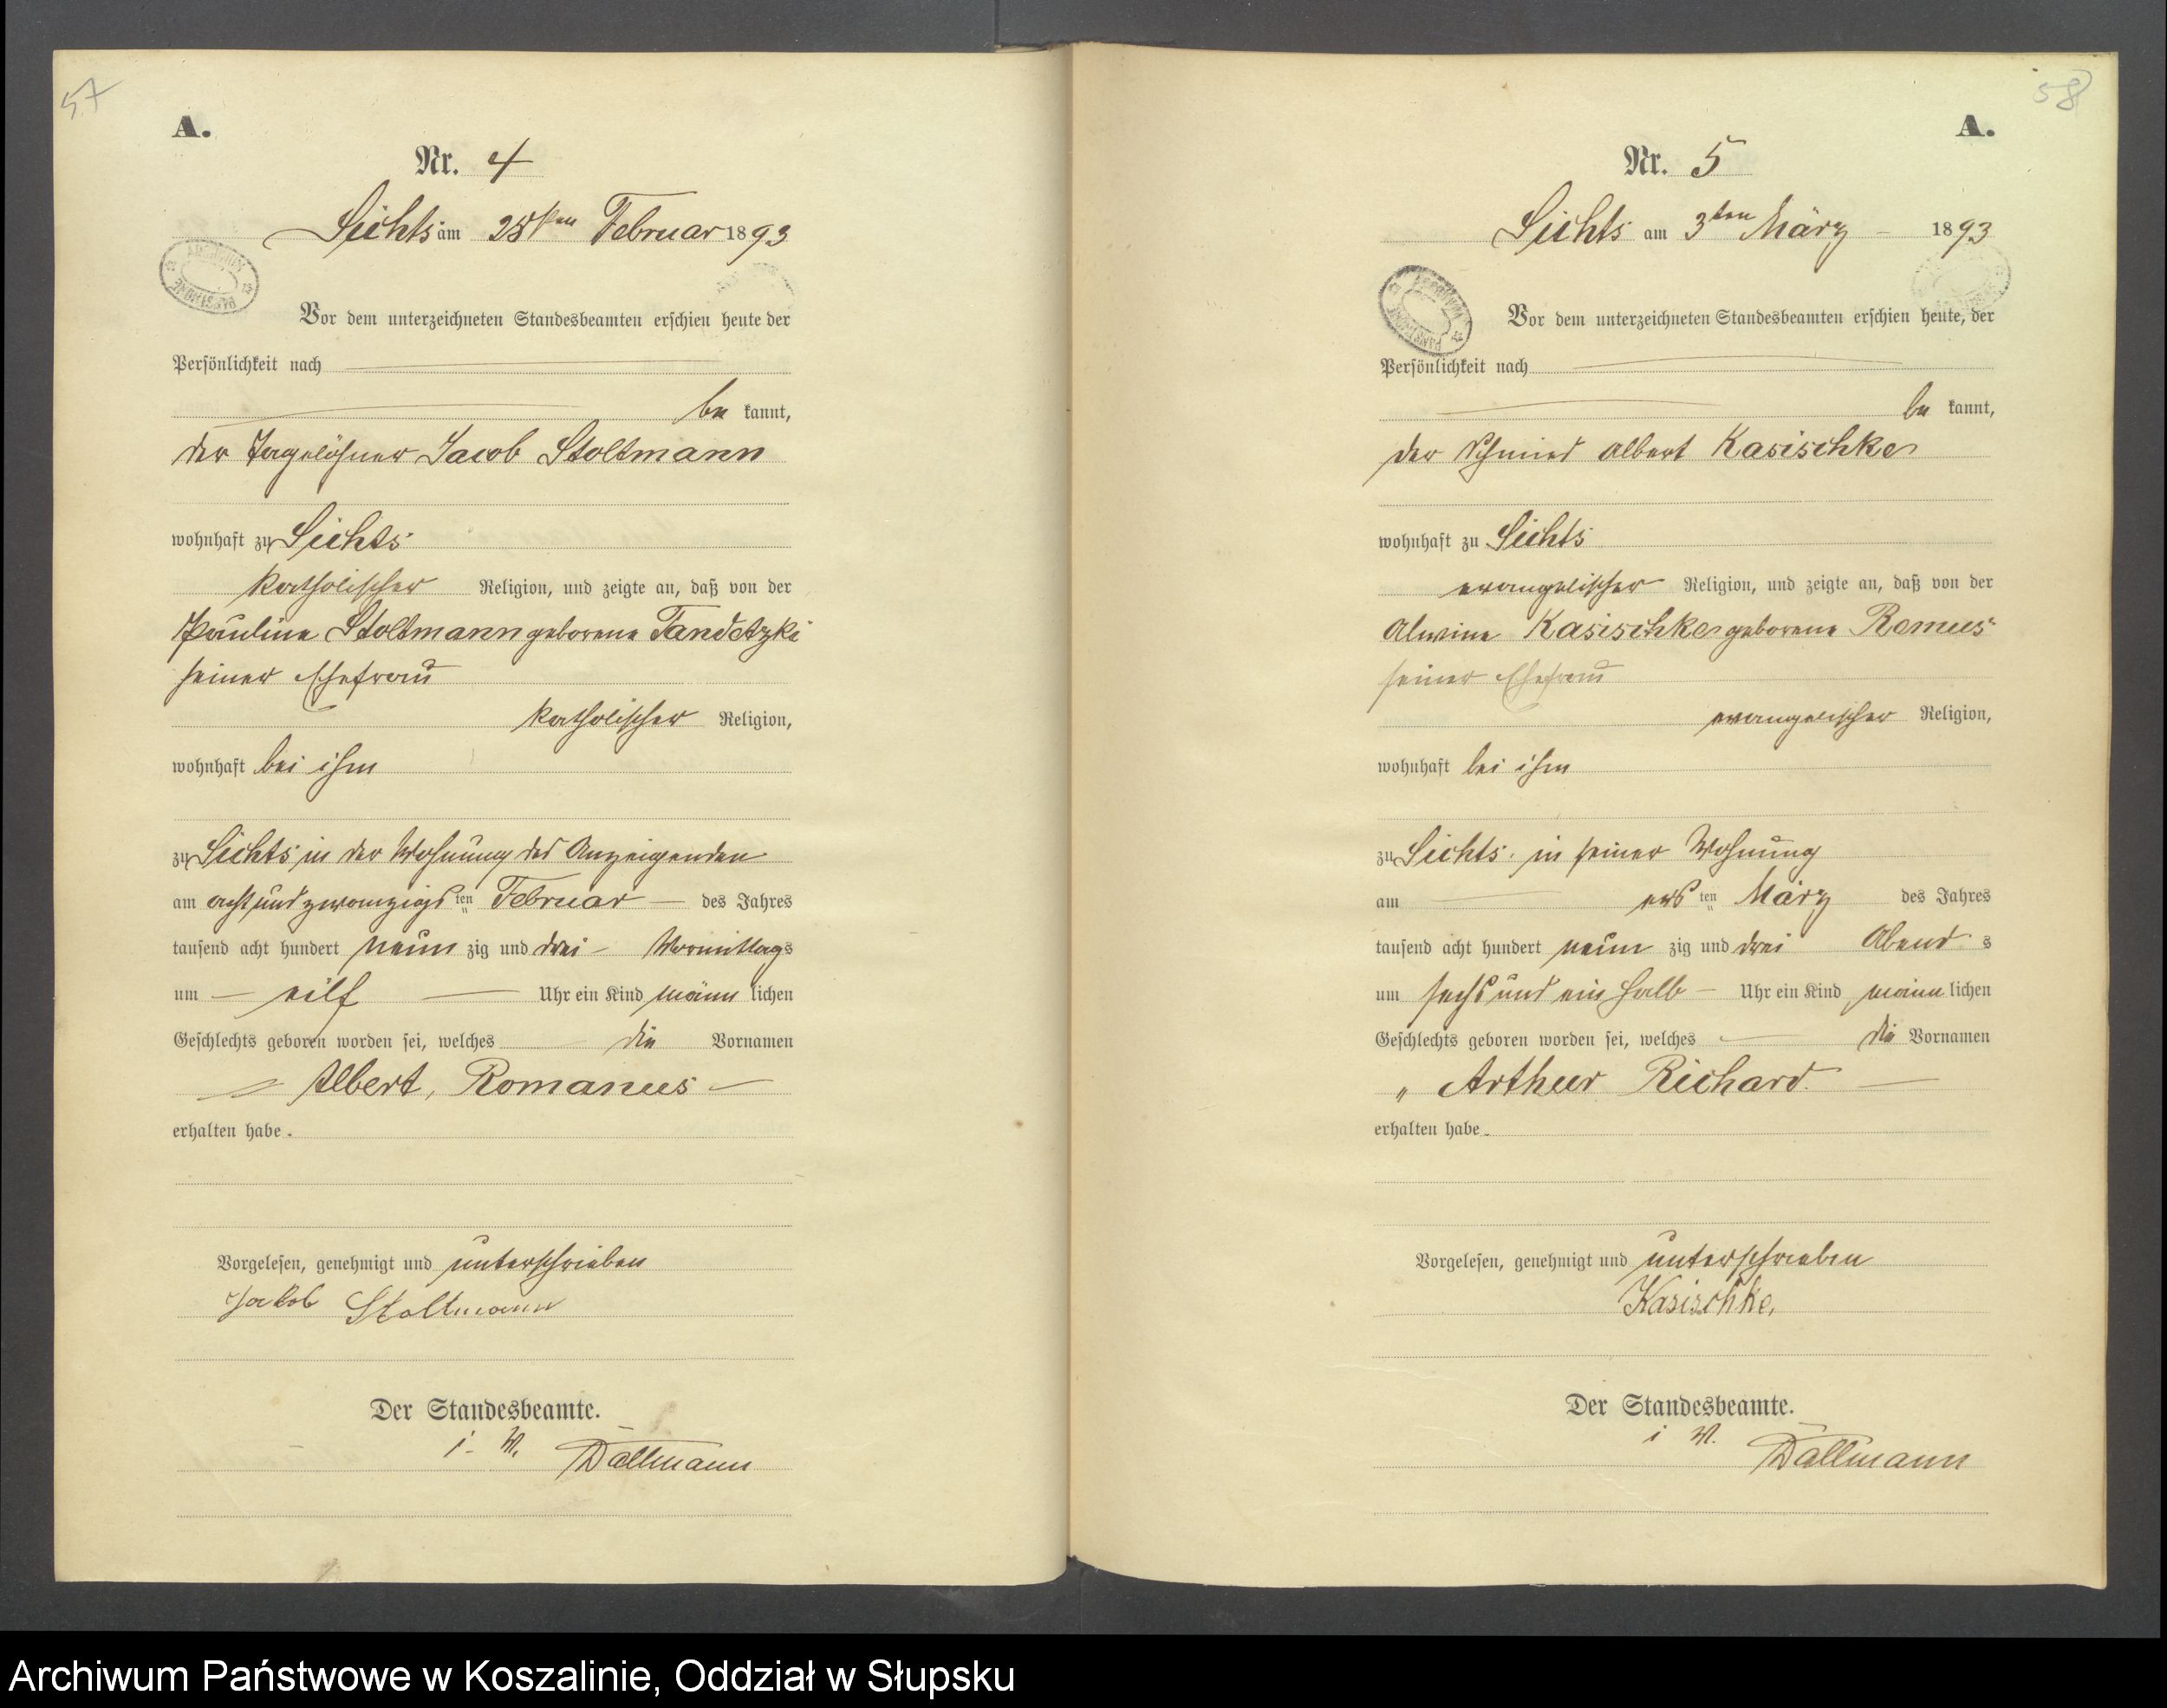 57
A.
Nr. 4
Sichts am 28ten Februar 1893
Vor dem unterzeichneten Standesbeamten erschien heute der
Persönlichkeit nach
be kannt,
der Tagelöhner Jacob Stoltmann
wohnhaft zu Sichts
katholischer Religion, und zeigte an, daß von der
Pauline Stoltmann geborene Tandetzki
seiner Ehefrau
katholischer Religion,
wohnhaft bei ihm
zu Sichts in der Wohnung des Anzeigenden
am acht und zwanzigsten Februar des Jahres
tausend acht hundert neun zig und drei Vormittags
um eilf Uhr ein Kind männ lichen
Geschlechts geboren worden sei, welches die Vornamen
Albert, Romanus
erhalten habe.
Vorgelesen, genehmigt und unterschrieben
Jakob Stoltmann
Der Standesbeamte.
i. V. Dallmann
58
A.
Nr. 5
Sichts am 3ten März 1893
Vor dem unterzeichneten Standesbeamten erschien heute, der
Persönlichkeit nach
be kannt,
der Schmied Albert Kasischke
wohnhaft zu Sichts
evangelischer Religion, und zeigte an, daß von der
Alwine Kasischke geborene Remus
seiner Ehefrau
evangelischer Religion,
wohnhaft bei ihm
zu Sichts in seiner Wohnung
am ersten März des Jahres
tausend acht hundert neun zig und drei Abend s
um sechs und ein halb Uhr ein Kind männ lichen
Geschlechts geboren worden sei, welches die Vornamen
Arthur Richard
erhalten habe.
Vorgelesen, genehmigt und unterschrieben
Kasischke.
Der Standesbeamte.
i V. Dallmann
Archiwum Państwowe w Koszalinie, Oddział w Słupsku